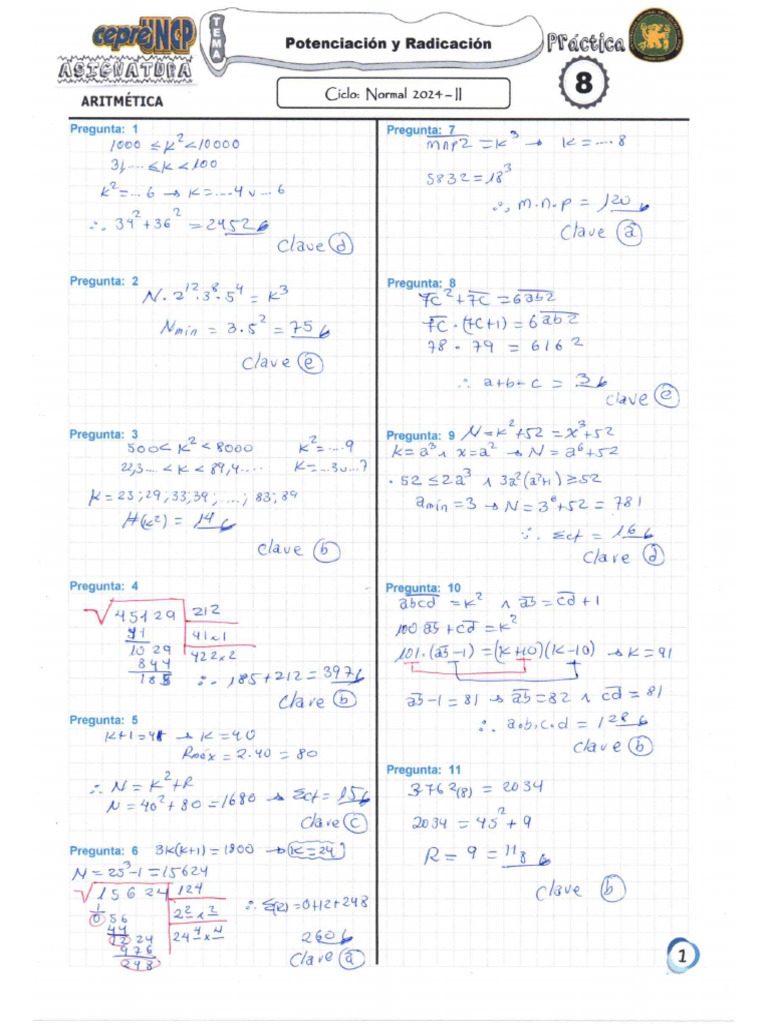 cepreUNCP
ASIGNATURA
ARITMÉTICA
TEMA
Potenciación y Radicación
Ciclo: Normal 2024-II
Práctica
8
Pregunta: 1
1000 ≤ K² < 10000
31,... ≤ K < 100
K² = ...6 → K = ...4 ∨ ...6
∴ 34² + 36² = 2452
Clave d
Pregunta: 2
N · 2¹² · 3⁸ · 5⁴ = K³
Nmin = 3 · 5² = 75
Clave e
Pregunta: 3
500 < K² < 8000 K² = ...9
22,3... < K < 89,4... K = ...3 ∨ ...7
K = 23; 29; 33; 39; ...; 83; 89
#(K²) = 14
Clave b
Pregunta: 4
√45129 212
41 41×1
1029 422×2
844
185 ∴ 185 + 212 = 397
Clave b
Pregunta: 5
K+1 = 41 → K = 40
Rmáx = 2·40 = 80
∴ N = K² + R
N = 40² + 80 = 1680 → Σcf = 15
Clave c
Pregunta: 6 3K(K+1) = 1800 → K = 24
N = 25³ - 1 = 15624
√15624 124
1 22×2
056 244×4
44
1224 ∴ Σ(R) = 0+12+248
976 260
248 Clave a
Pregunta: 7
mnp2 = K³ → K = ...8
5832 = 18³
∴ m.n.p = 120
Clave a
Pregunta: 8
7C² + 7C = 6ab2
7C · (7C+1) = 6ab2
78 · 79 = 6162
∴ a+b+c =
Clave e
Pregunta: 9 N = K² + 52 = x³ + 52
K = a³ ∧ x = a² → N = a⁶ + 52
· 52 ≤ 2a³ ∧ 3a²(a²+1) ≥ 52
amin = 3 → N = 3⁶ + 52 = 781
∴ Σcf = 16
Clave d
Pregunta: 10
abcd = K² ∧ ab = cd + 1
100 ab + cd = K²
101·(ab-1) = (K+10)(K-10) → K = 91
ab-1 = 81 → ab = 82 ∧ cd = 81
∴ a.b.c.d = 128
Clave b
Pregunta: 11
3762(8) = 2034
2034 = 45² + 9
R = 9 = 11₈
Clave b
1